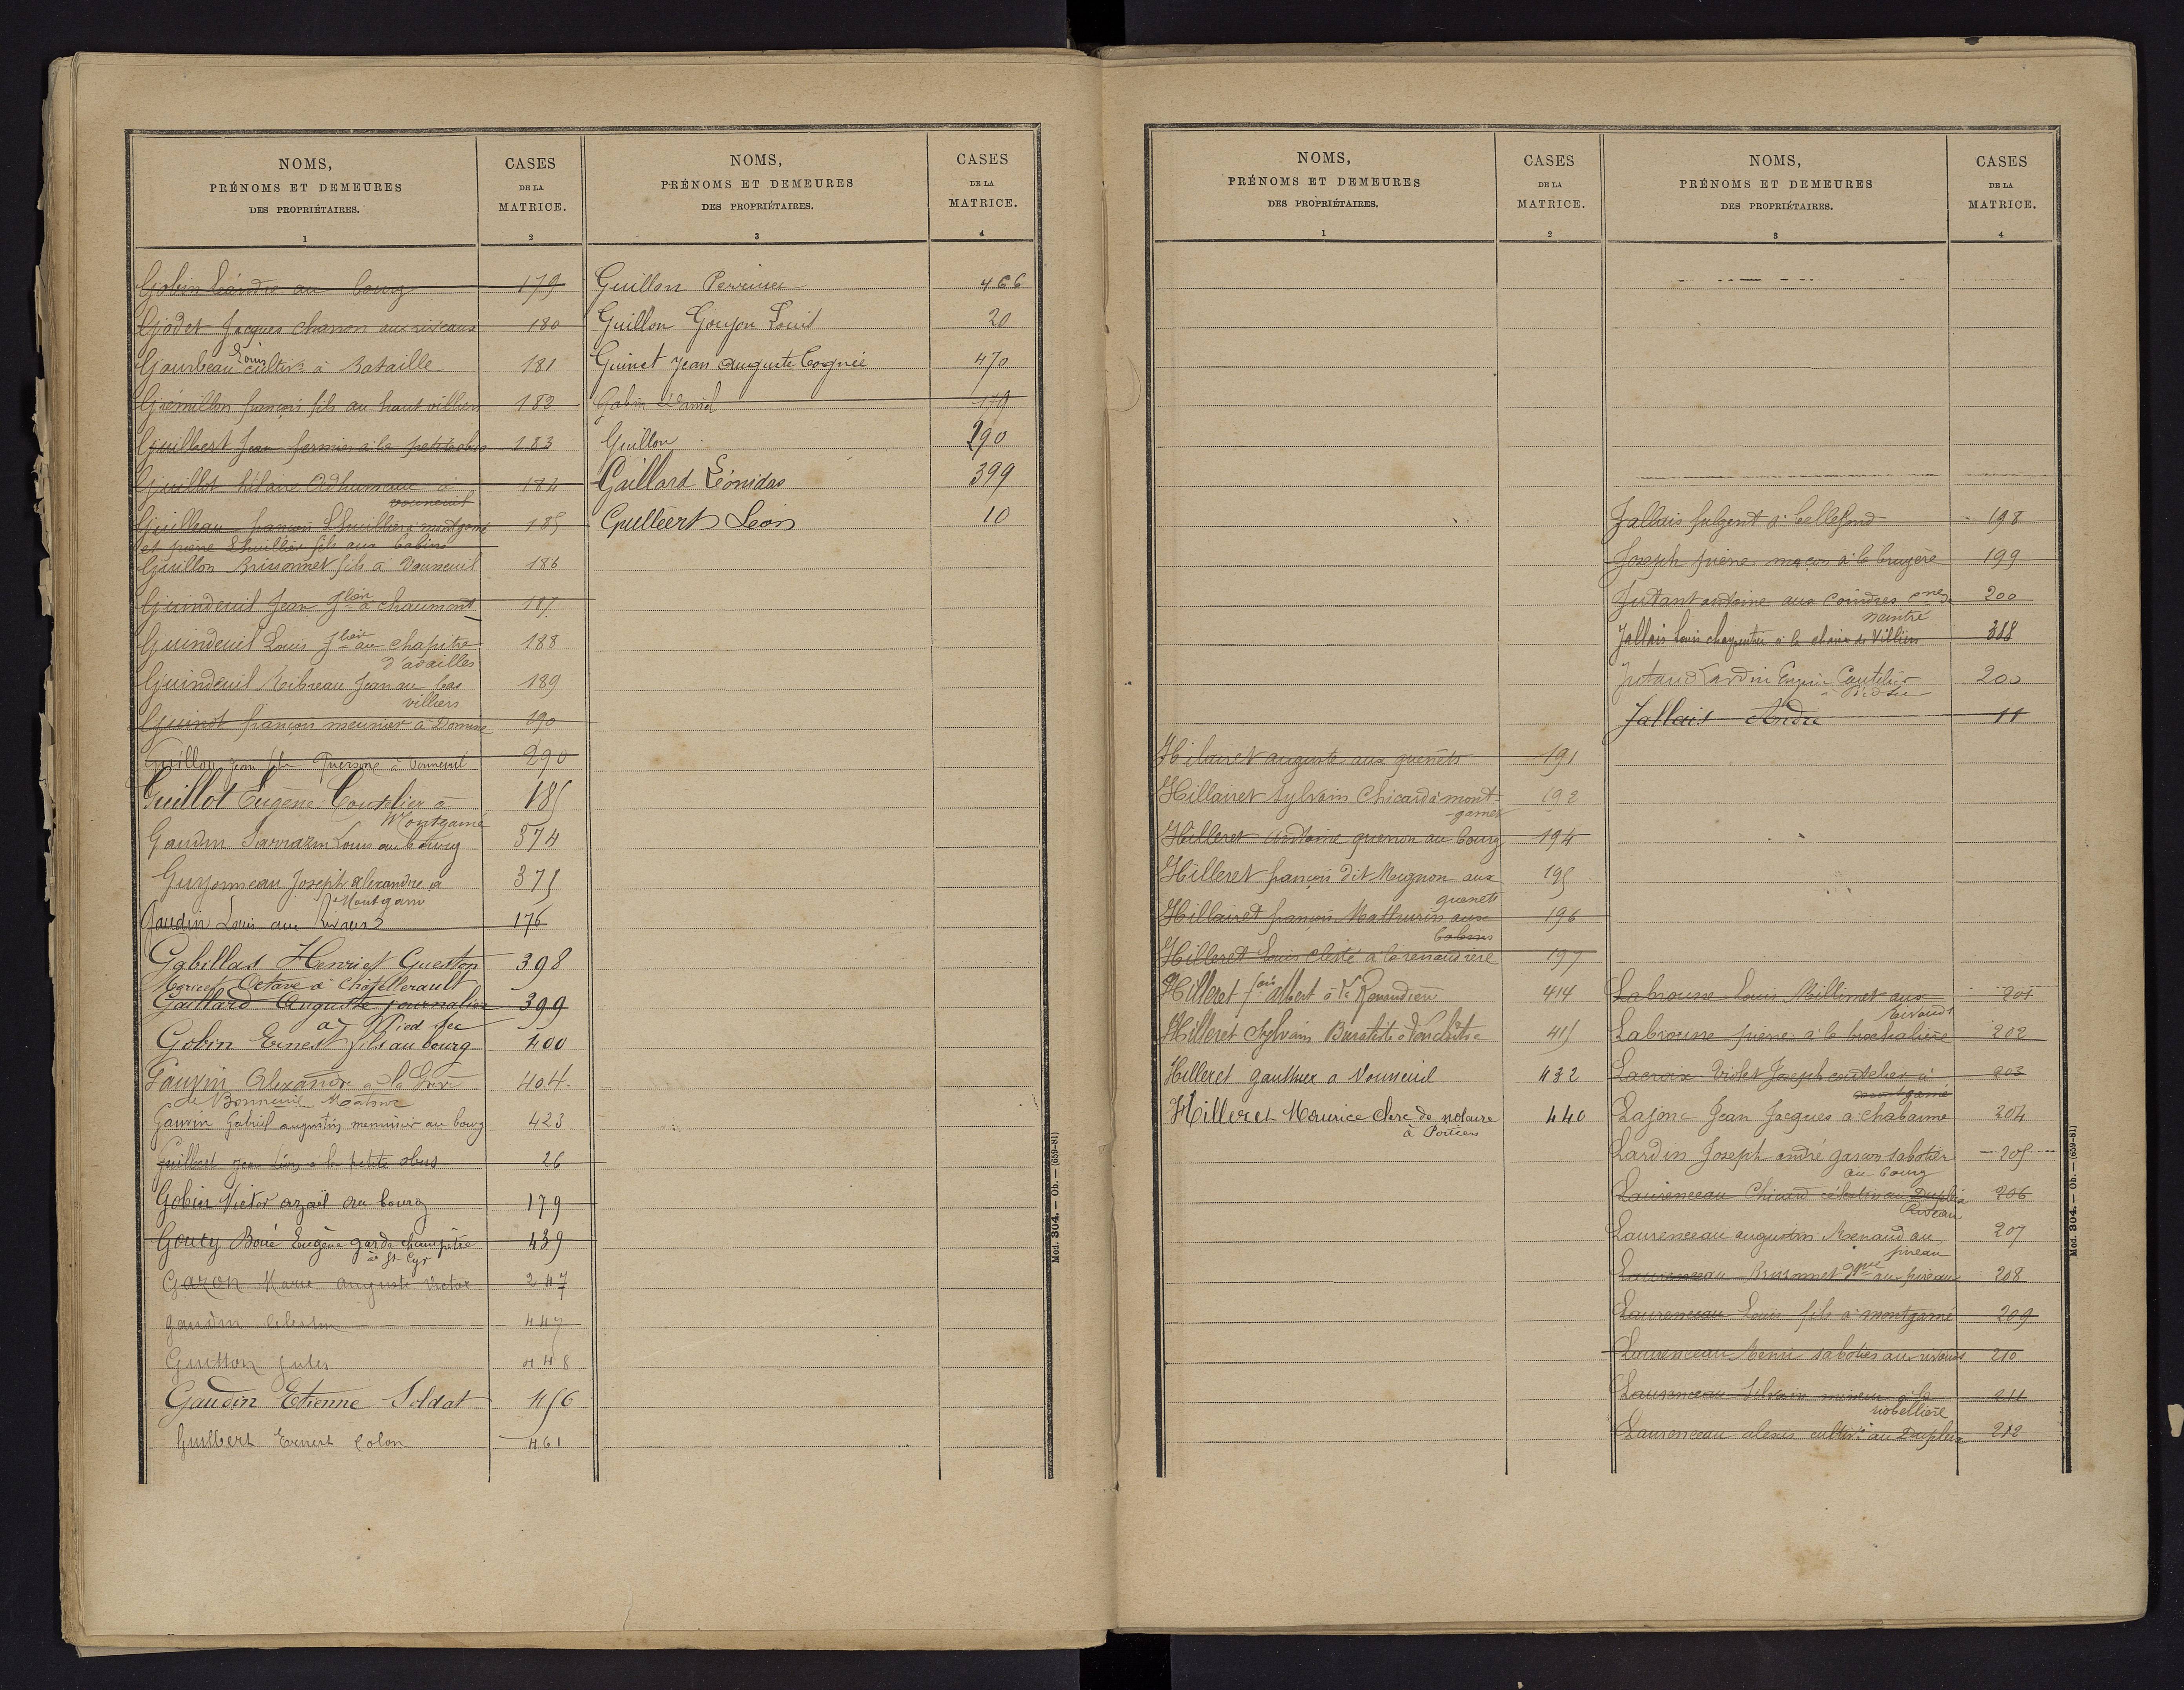 NOMS,
PRÉNOMS ET DEMEURES
DES PROPRIÉTAIRES.
1
CASES
DE LA
MATRICE.
2
Gobin Léandre au bourg 179
Godet Jacques charron aux riveaux 180
Gourbeau Louis cultivr à Bataille 181
Gremillon françois fils au haut villiers 182
Guilbert Jean fermier à la petite obus 183
Guillot hilaire Adhumeau à 184
vouneuil
Guilleau françois Lhuillier à montgamé 185
et pierre Lhuillier fils aux babins
Guillon Brissonnet fils à Vouneuil 186
Guindeuil Jean Jlier à chaumont 187
Guindeuil Louis Jlier au chapitre 188
d'availles
Guindeuil Ribreau Jean au bas 189
villiers
Guinot françois meunier à Domine 190
Guillon jean fils à Vouneuil 290
Guillot Eugène Coutelier à 185
Montgamé
Gaudin Sarrazin Louis au bourg 374
Guyonneau Joseph alexandre à 375
Montgamé
Gaudin Louis aux Rivaux 176
Gabillas Henri et Gueston 398
Octave à Châtellerault
Gaillard Auguste journalier 399
à Pied sec
Gobin Ernest fils au bourg 400
Gauvin Alexandre à la 404
de Bonneuil Matour
Gauvin Gabriel augustin menuisier au bourg 423
Guilbert Jean Léon à la petite obus 26
Gobin Victor azaël au bourg 179
Gouty Boué Eugène garde champêtre 439
à St Cyr
Gazon Marie auguste Victor 247
Gaudin Celestin 447
Guitton Jules 448
Gaudin Etienne Soldat 456
Guilbert Ernest Colon 461
NOMS,
PRÉNOMS ET DEMEURES
DES PROPRIÉTAIRES.
3
CASES
DE LA
MATRICE.
4
Guillon Perrine 466
Guillon Goujon Louis 20
Guinet Jean Auguste Cognée 470
Gobin Daniel 179
Guillon 290
Gaillard Léonidas 399
Guilbert Léon 10
Mod. 304. — Ob. — (659-81)
NOMS,
PRÉNOMS ET DEMEURES
DES PROPRIÉTAIRES.
1
CASES
DE LA
MATRICE.
2
Hilairet auguste aux quenêts 191
Hillairet Sylvain Chicard à mont- 192
-gamé
Hilleret Antoine quenon au bourg 194
Hilleret françois dit Mugnon aux 195
quenets
Hillairet françois Mathurin aux 196
babins
Hilleret Louis à la renaudière 197
Hilleret fois Albert à la Renaudière 414
Hilleret Sylvain 415
Hilleret Gauthier a Vouneuil 432
Hilleret Maurice clerc de notaire 440
à Poitiers
NOMS,
PRÉNOMS ET DEMEURES
DES PROPRIÉTAIRES.
3
CASES
DE LA
MATRICE.
4
Jallais fulgent à bellefond 198
Joseph pierre maçon à la bruyère 199
Jutant antoine aux Coindres cne de 200
naintré
Jallais Louis charpentier à la de Villiers 318
Jutaud Lardin Eugène Coutelier 200
à Pied Sec
Jallais André 11
Labrousse Louis Millimet aux 201
Rivauds
Labrousse pierre à la brochalière 202
Lacroix Violet Joseph coutelier à 203
montgamé
Lajone Jean Jacques à chabanne 204
Lardin Joseph andré garçon Sabotier 205
au bourg
Laurenceau Chicard au Duplex 206
Riveau
Laurenceau augustin Renaud au 207
pineau
Laurenceau Brissonnet aux pireaux 208
Laurenceau Louis fils à montgamé 209
Laurenceau Remi sabotier aux rivauds 210
Laurenceau Silvain mineur à la 211
robellière
Laurenceau alexis cultivr au Duplex 212
Mod. 304. — Ob. — (659-81)